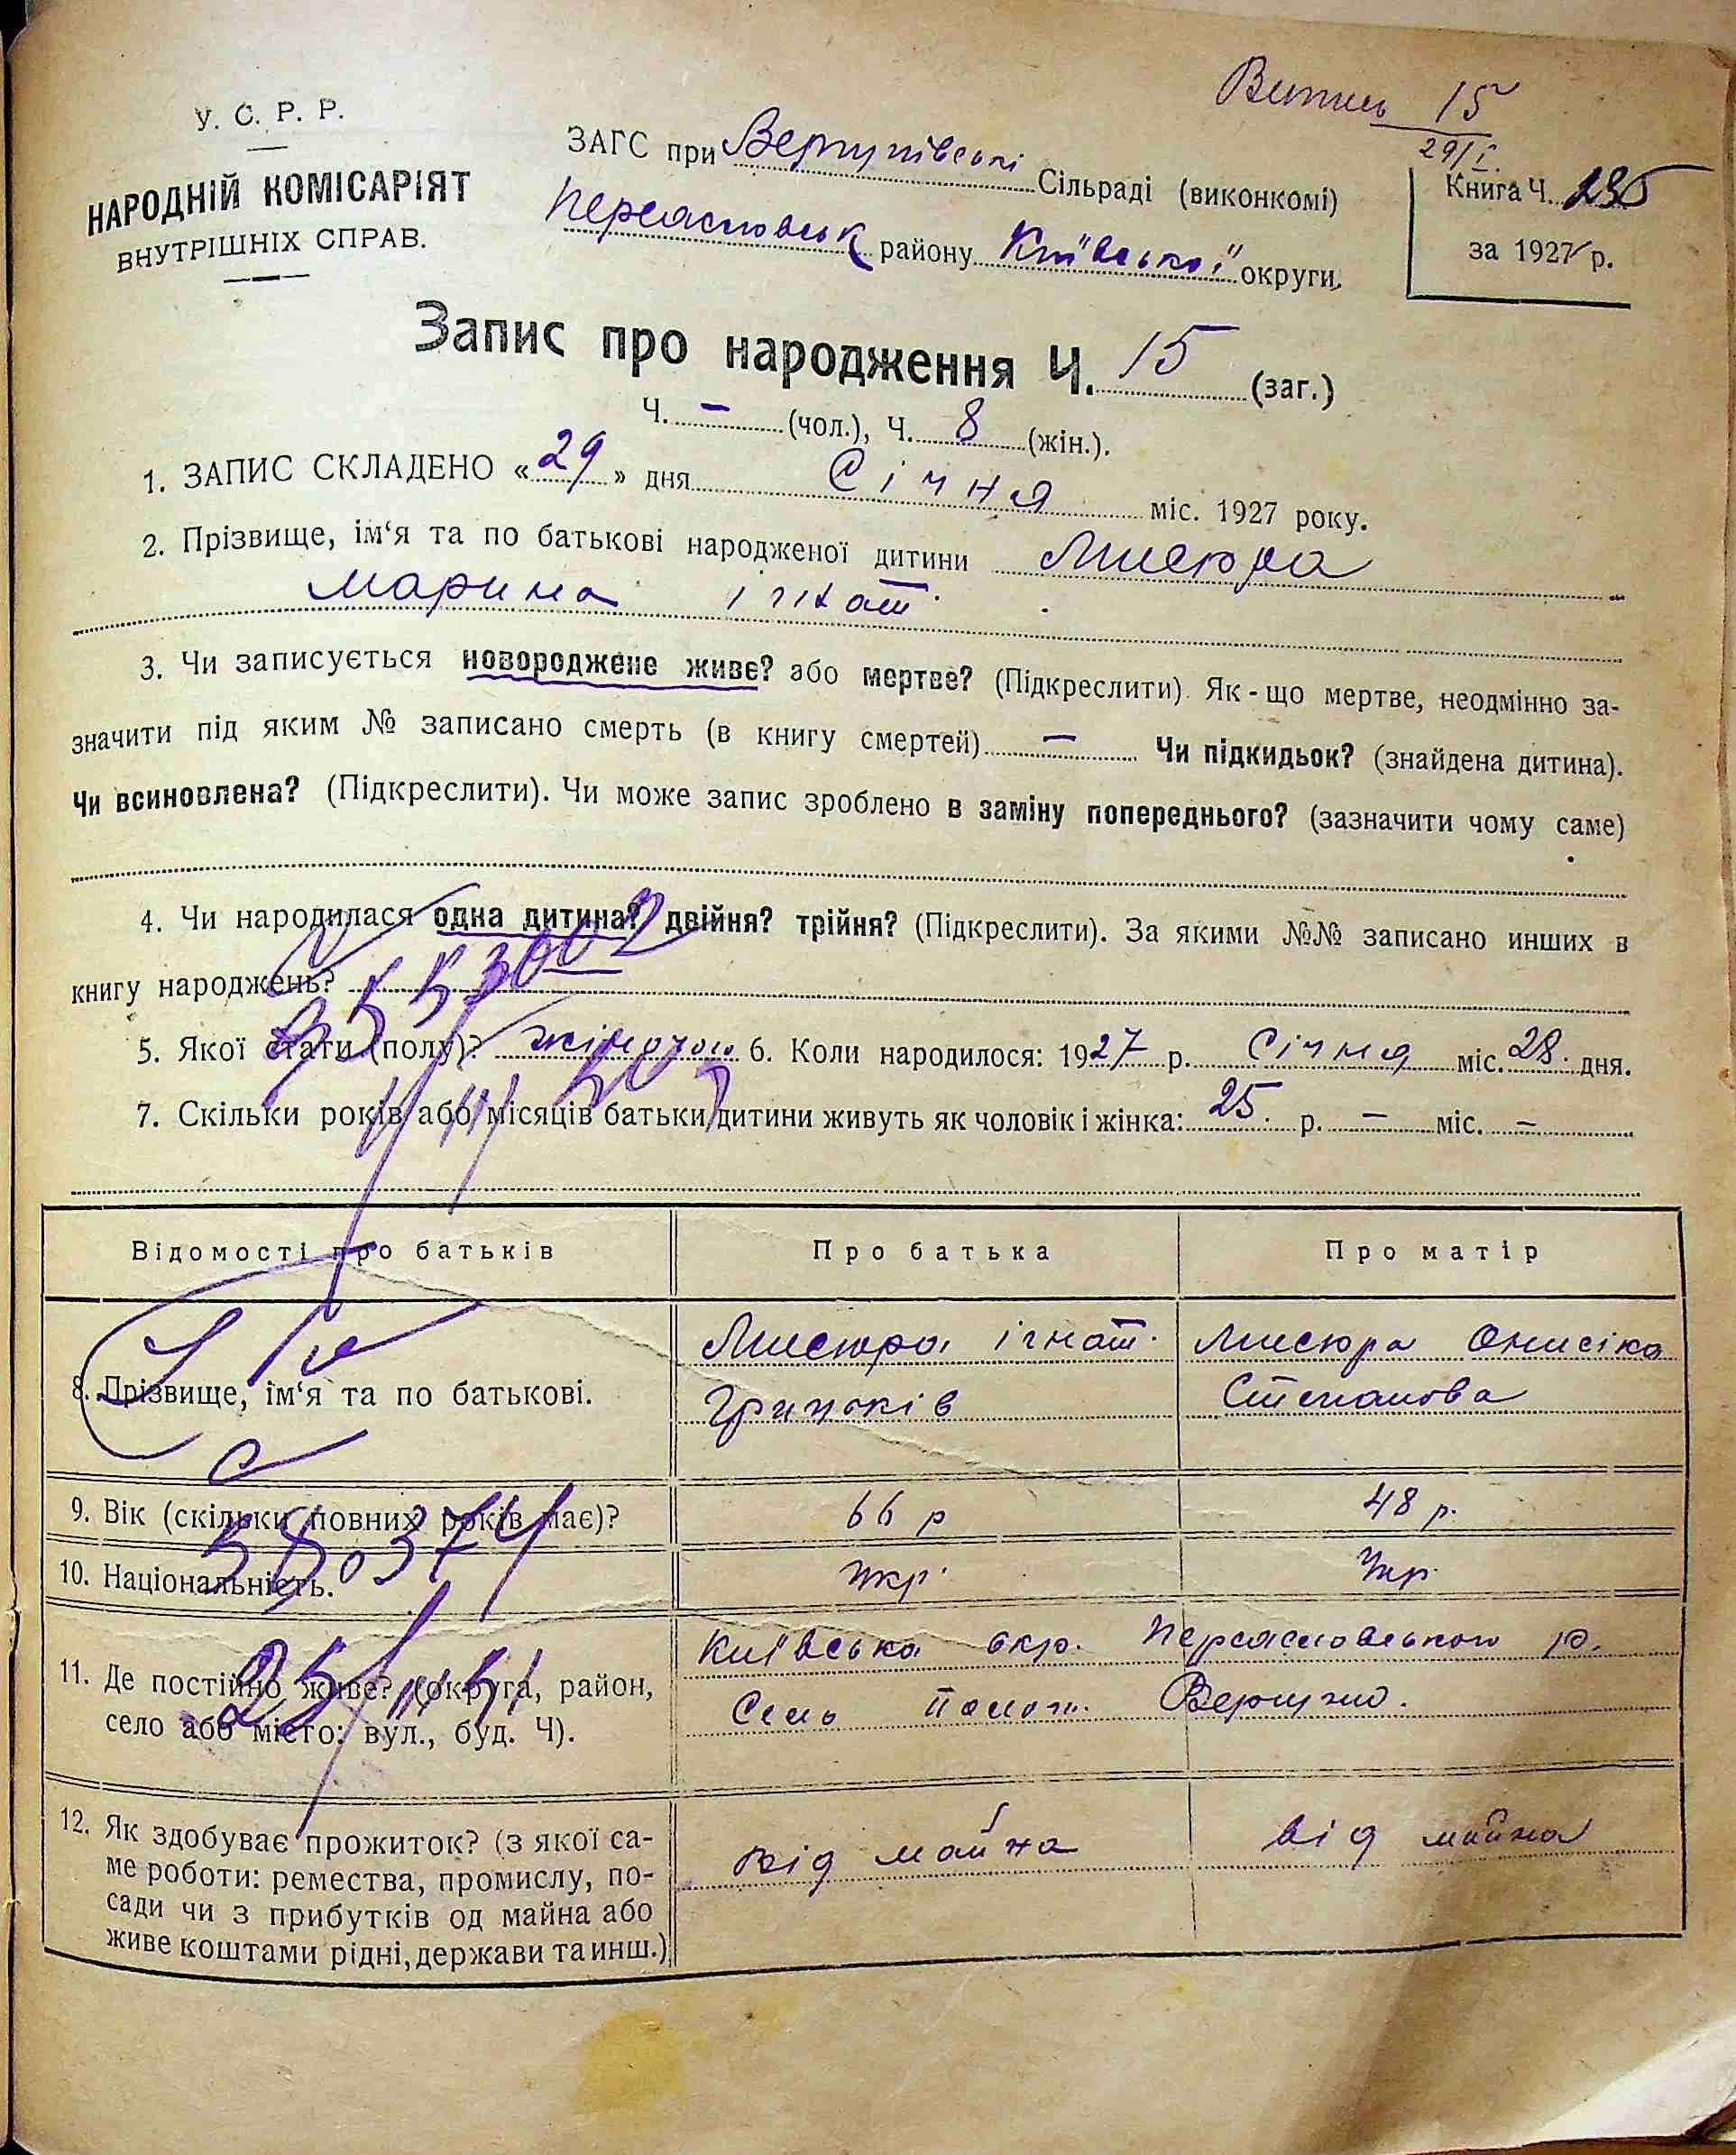 Витись 15
29/I.
У. С. Р. Р.
НАРОДНІЙ КОМІСАРІЯТ
ВНУТРІШНІХ СПРАВ.
ЗАГС при Сільраді (виконкомі)
району Київської округи.
Книга Ч. 235
за 1927 р.
Запис про народження Ч. 15 (заг.)
Ч. — (чол.), Ч. 8 (жін.).
1. ЗАПИС СКЛАДЕНО «29» дня Січня міс. 1927 року.
2. Прізвище, ім‘я та по батькові народженої дитини Мисюра
Марина Ігнат.
3. Чи записується новороджене живе? або мертве? (Підкреслити). Як-що мертве, неодмінно за-
значити під яким № записано смерть (в книгу смертей) — Чи підкидьок? (знайдена дитина).
Чи всиновлена? (Підкреслити). Чи може запис зроблено в заміну попереднього? (зазначити чому саме)
4. Чи народилася одна дитина? двійня? трійня? (Підкреслити). За якими №№ записано инших в
книгу народжень?
5. Якої стати (полу)? жіночою 6. Коли народилося: 1927 р. Січня міс. 28. дня.
7. Скільки років або місяців батьки дитини живуть як чоловік і жінка: 25. р. — міс. —
Відомості про батьків Про батька Про матір
8. Прізвище, ім‘я та по батькові.
Мисюра Ігнат. Мисюра Онисіка
Грицьків Степанова
9. Вік (скільки повних років має)? 66 р 48 р.
10. Національність. Укр. Укр
11. Де постійно живе? (округа, район,
село або місто: вул., буд. Ч).
Київська окр. Переасловського р.
Село
12. Як здобуває прожиток? (з якої са-
ме роботи: ремества, промислу, по-
сади чи з прибутків од майна або
живе коштами рідні, держави та инш.)
від майна від майна
580374